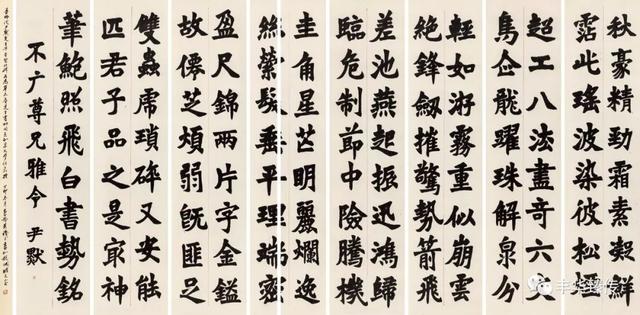 秋豪精勁霜素凝鮮
霑此瑤波染彼松煙
超工八法盡奇六文
鳥企龍躍珠解泉分
輕如游霧重似崩雲
絕鋒劒摧驚勢箭飛
差池燕起振迅鴻歸
臨危制節中險騰機
圭角星芒明麗爛逸
絲縈髮垂平理端密
盈尺錦兩片字金鎰
故僊芝煩弱既匪足
雙蟲虎瑣碎又安能
匹君子品之是冣神
筆鮑照飛白書勢銘
不广尊兄雅令 尹默